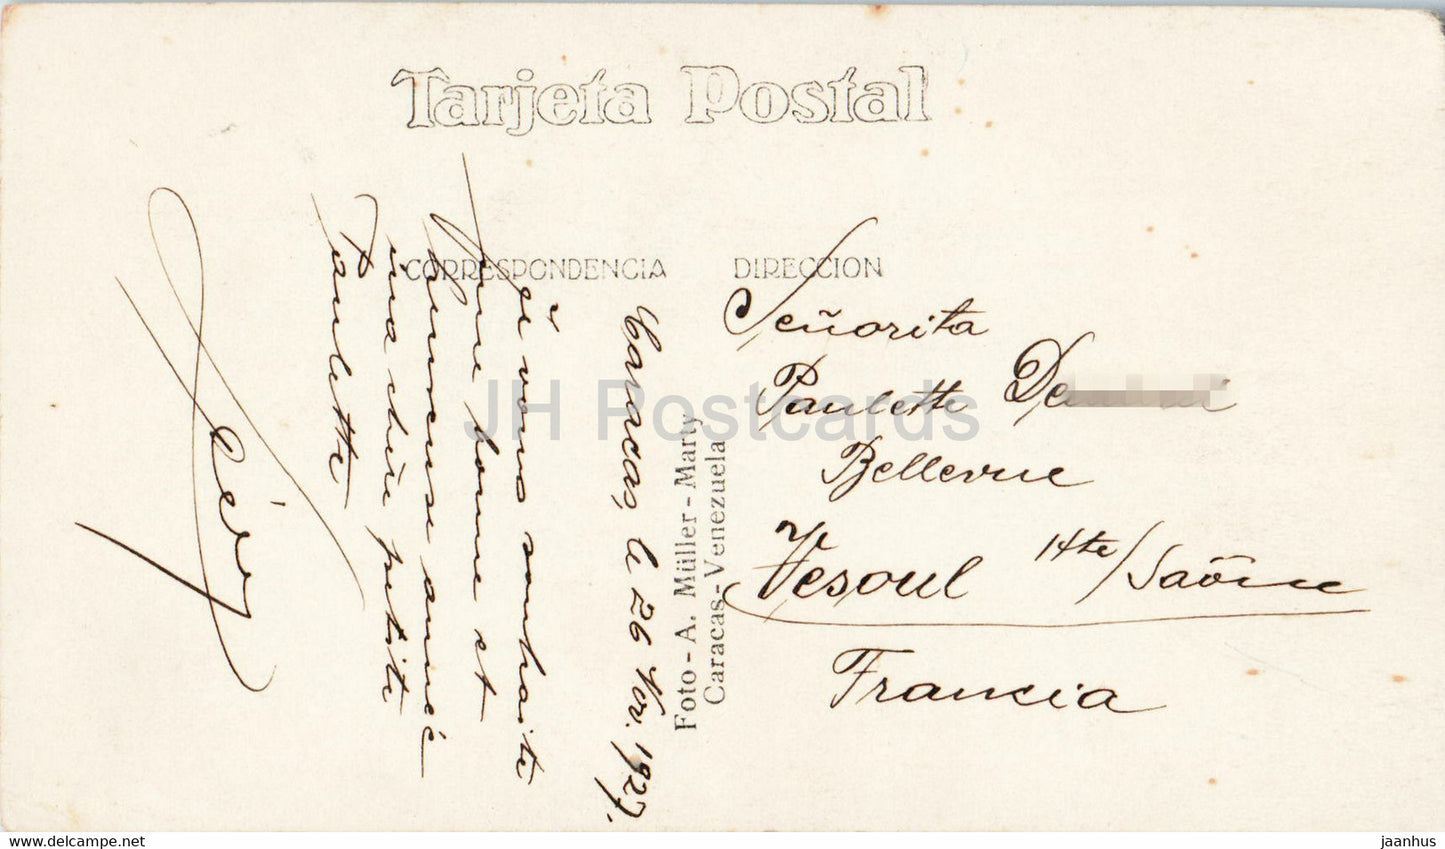 Tarjeta Postal
CORRESPONDENCIA
DIRECCION
Caracas, le 26 Nov. 1927.
je vous souhaite
une bonne et
heureuse année
ma chère petite
Paulette
Señorita
Paulette De
Bellevue
Vesoul Hte/Saône
Francia
Foto - A. Müller - Marty
Caracas - Venezuela
JH Postcards
https://www.delcampe.net
jaanhus